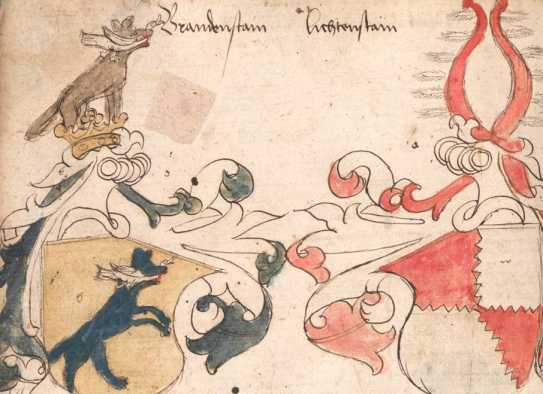 Brandenstain Lichtenstain